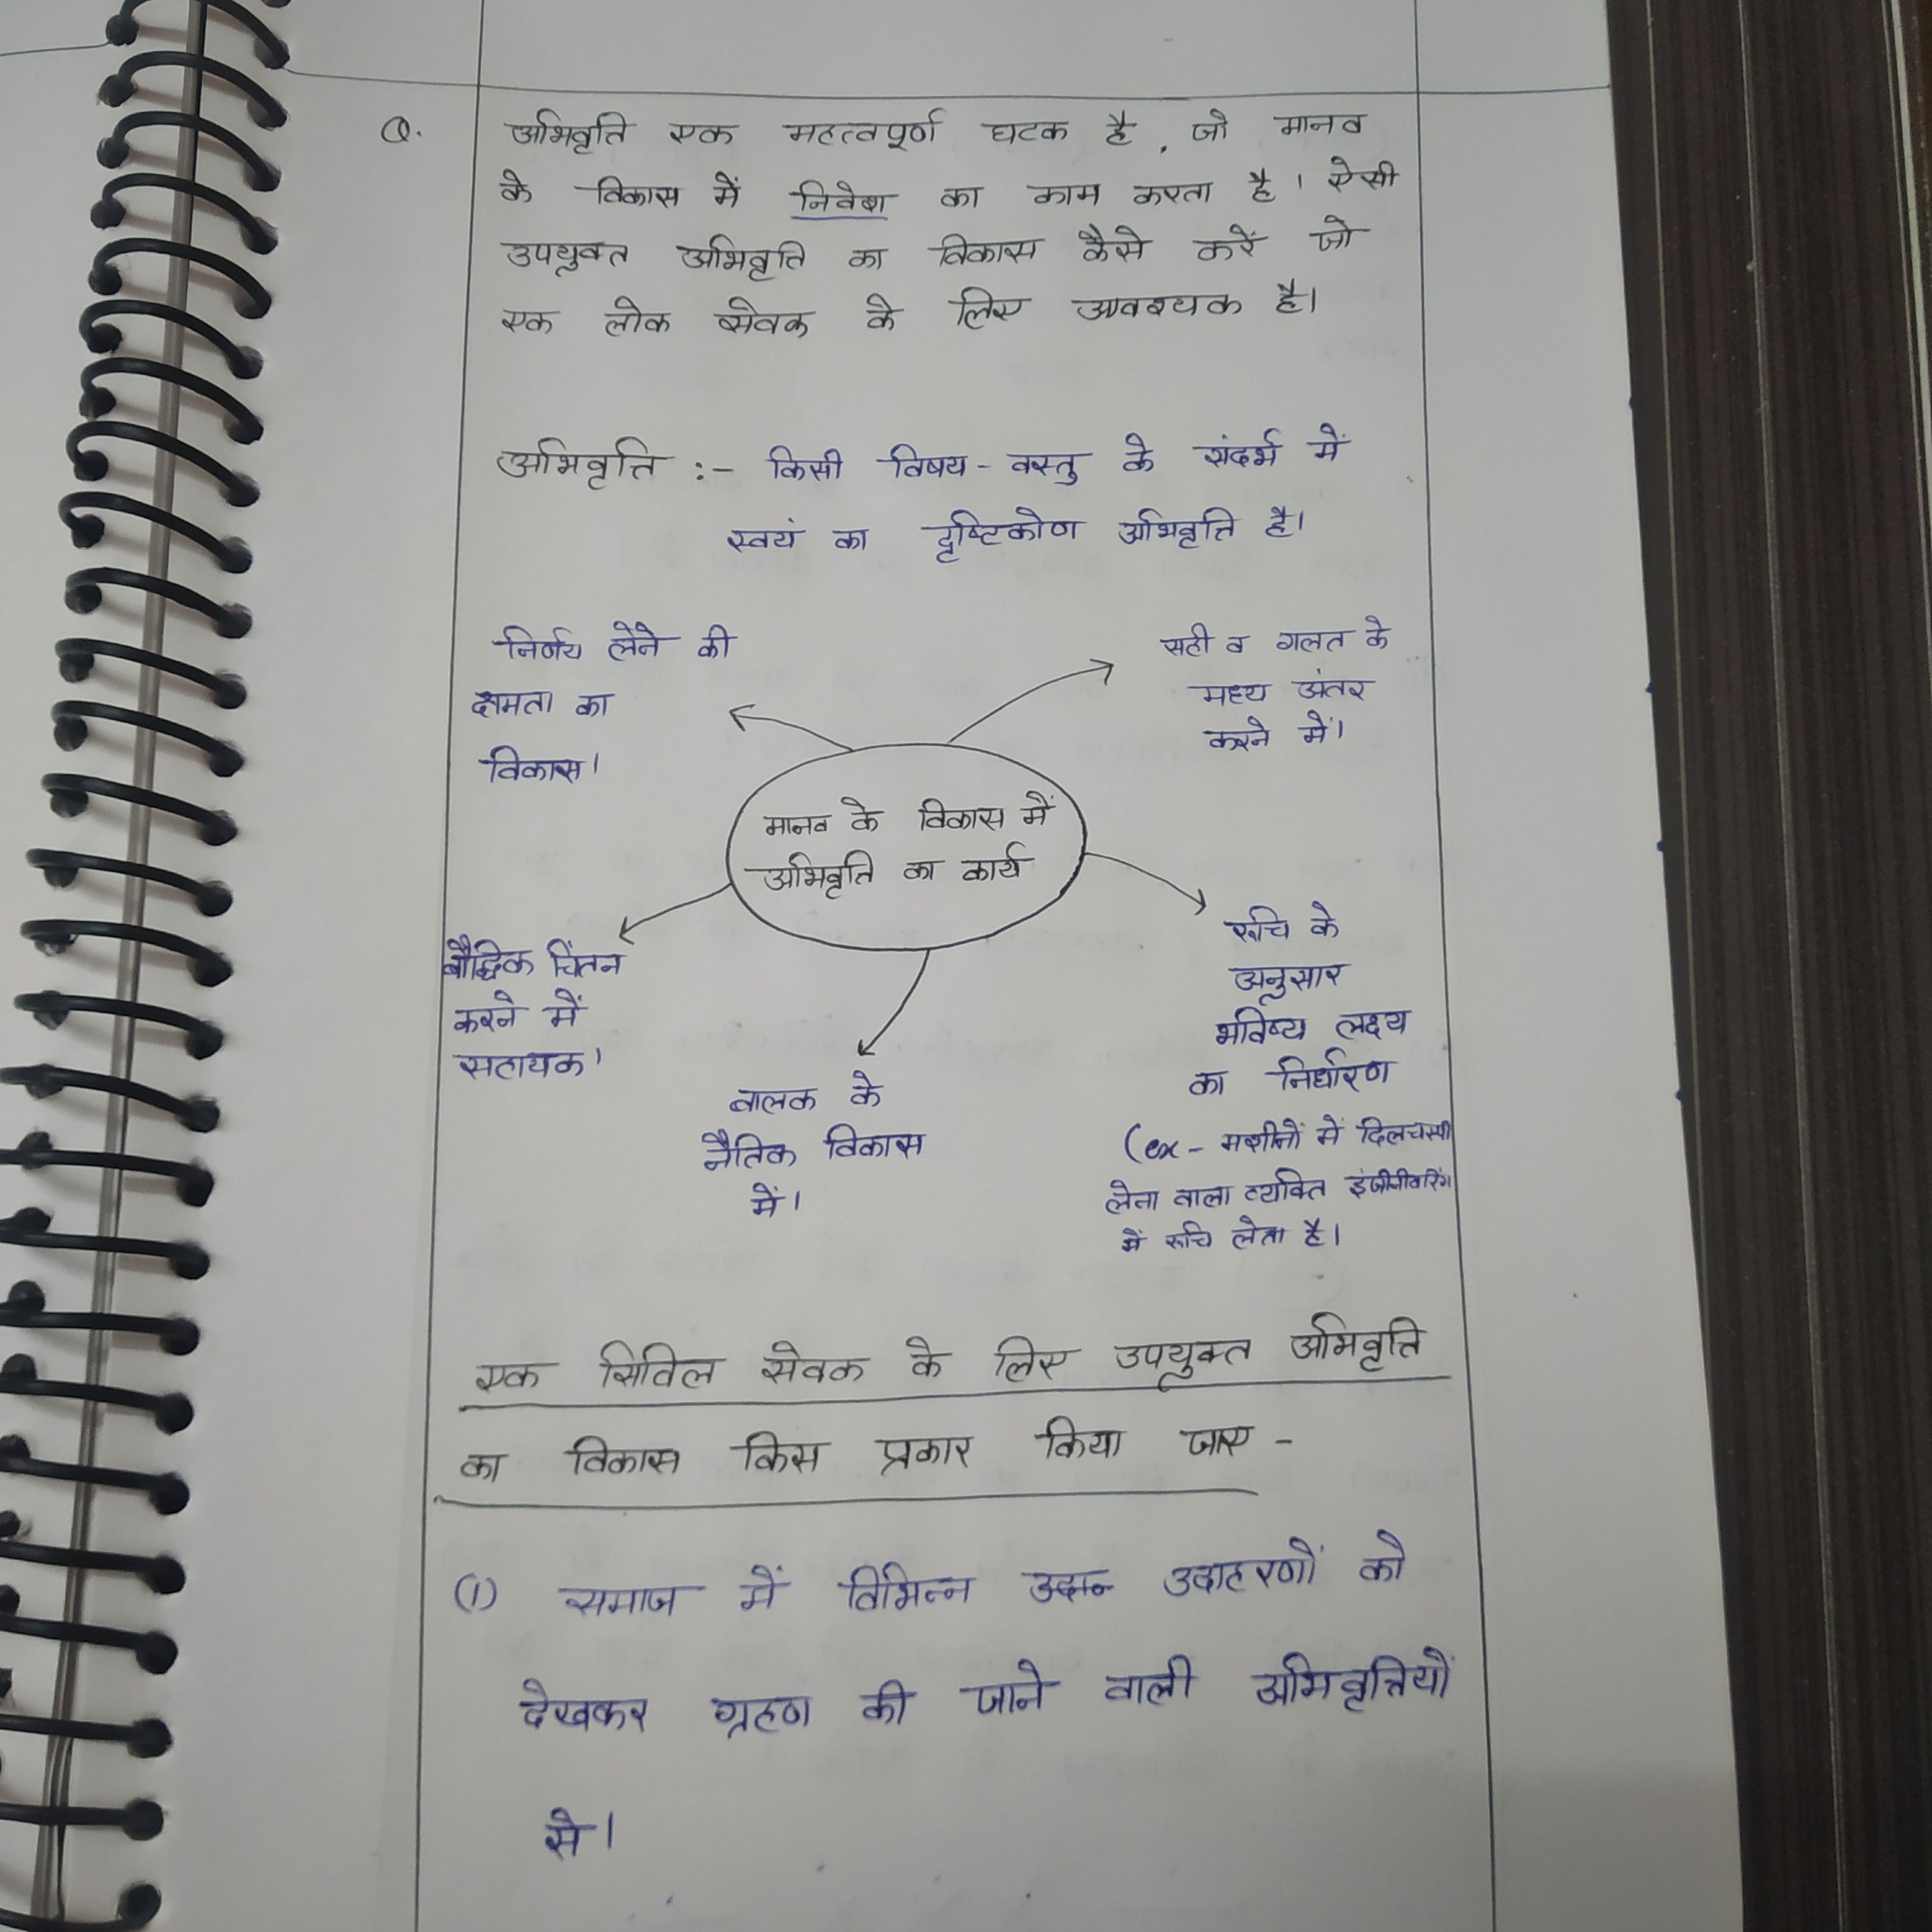 Q. अभिवृति एक महत्वपूर्ण घटक है, जो मानव
के विकास में निवेश का काम करता है। ऐसी
उपयुक्त अभिवृति का विकास कैसे करें जो
एक लोक सेवक के लिए आवश्यक है।
अभिवृत्ति :- किसी विषय-वस्तु के संदर्भ में
स्वयं का दृष्टिकोण अभिवृत्ति है।
निर्णय लेने की
क्षमता का
विकास।
सही व गलत के
मध्य अंतर
करने में।
मानव के विकास में
अभिवृति का कार्य
बौद्धिक चिंतन
करने में
सहायक।
बालक के
नैतिक विकास
में।
रूचि के
अनुसार
भविष्य लक्ष्य
का निर्धारण
(ex- मशीनों में दिलचस्पी
लेना वाला व्यक्ति इंजीनीयरिंग
में रूचि लेता है।
एक सिविल सेवक के लिए उपयुक्त अभिवृत्ति
का विकास किस प्रकार किया जाए -
(1) समाज में विभिन्न उदाहरणों को
देखकर ग्रहण की जाने वाली अभिवृत्तियों
से।